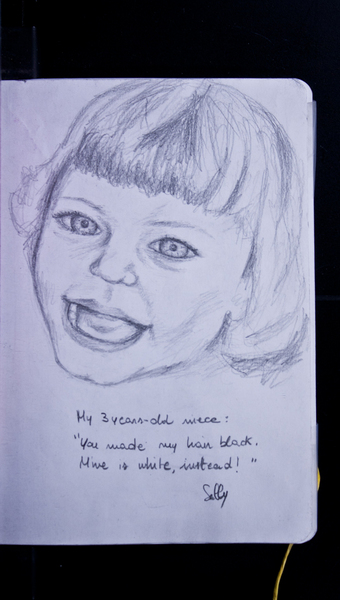 My 3 years-old niece:
"You made my hair black.
Mine is white, instead! "
Sally